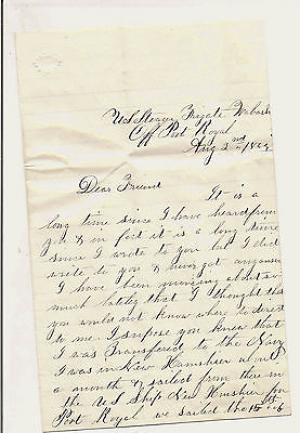 US Steam Frigate Wabash
Off Port Royal
Aug 2nd
Dear Friend
It is a
long time since I have heard from
you & in fact it is a long time
since I wrote to you but I did
write to you & never got answer
I have been moving about so
much lately that I thought that
you would not know where to direct
to me. I supose you knew that
I was Transfered to the Navy
I was in New Hamshier about
a month & sailed from there in
the US Ship New Hamshier for
Port Royal we sailed the 15th of